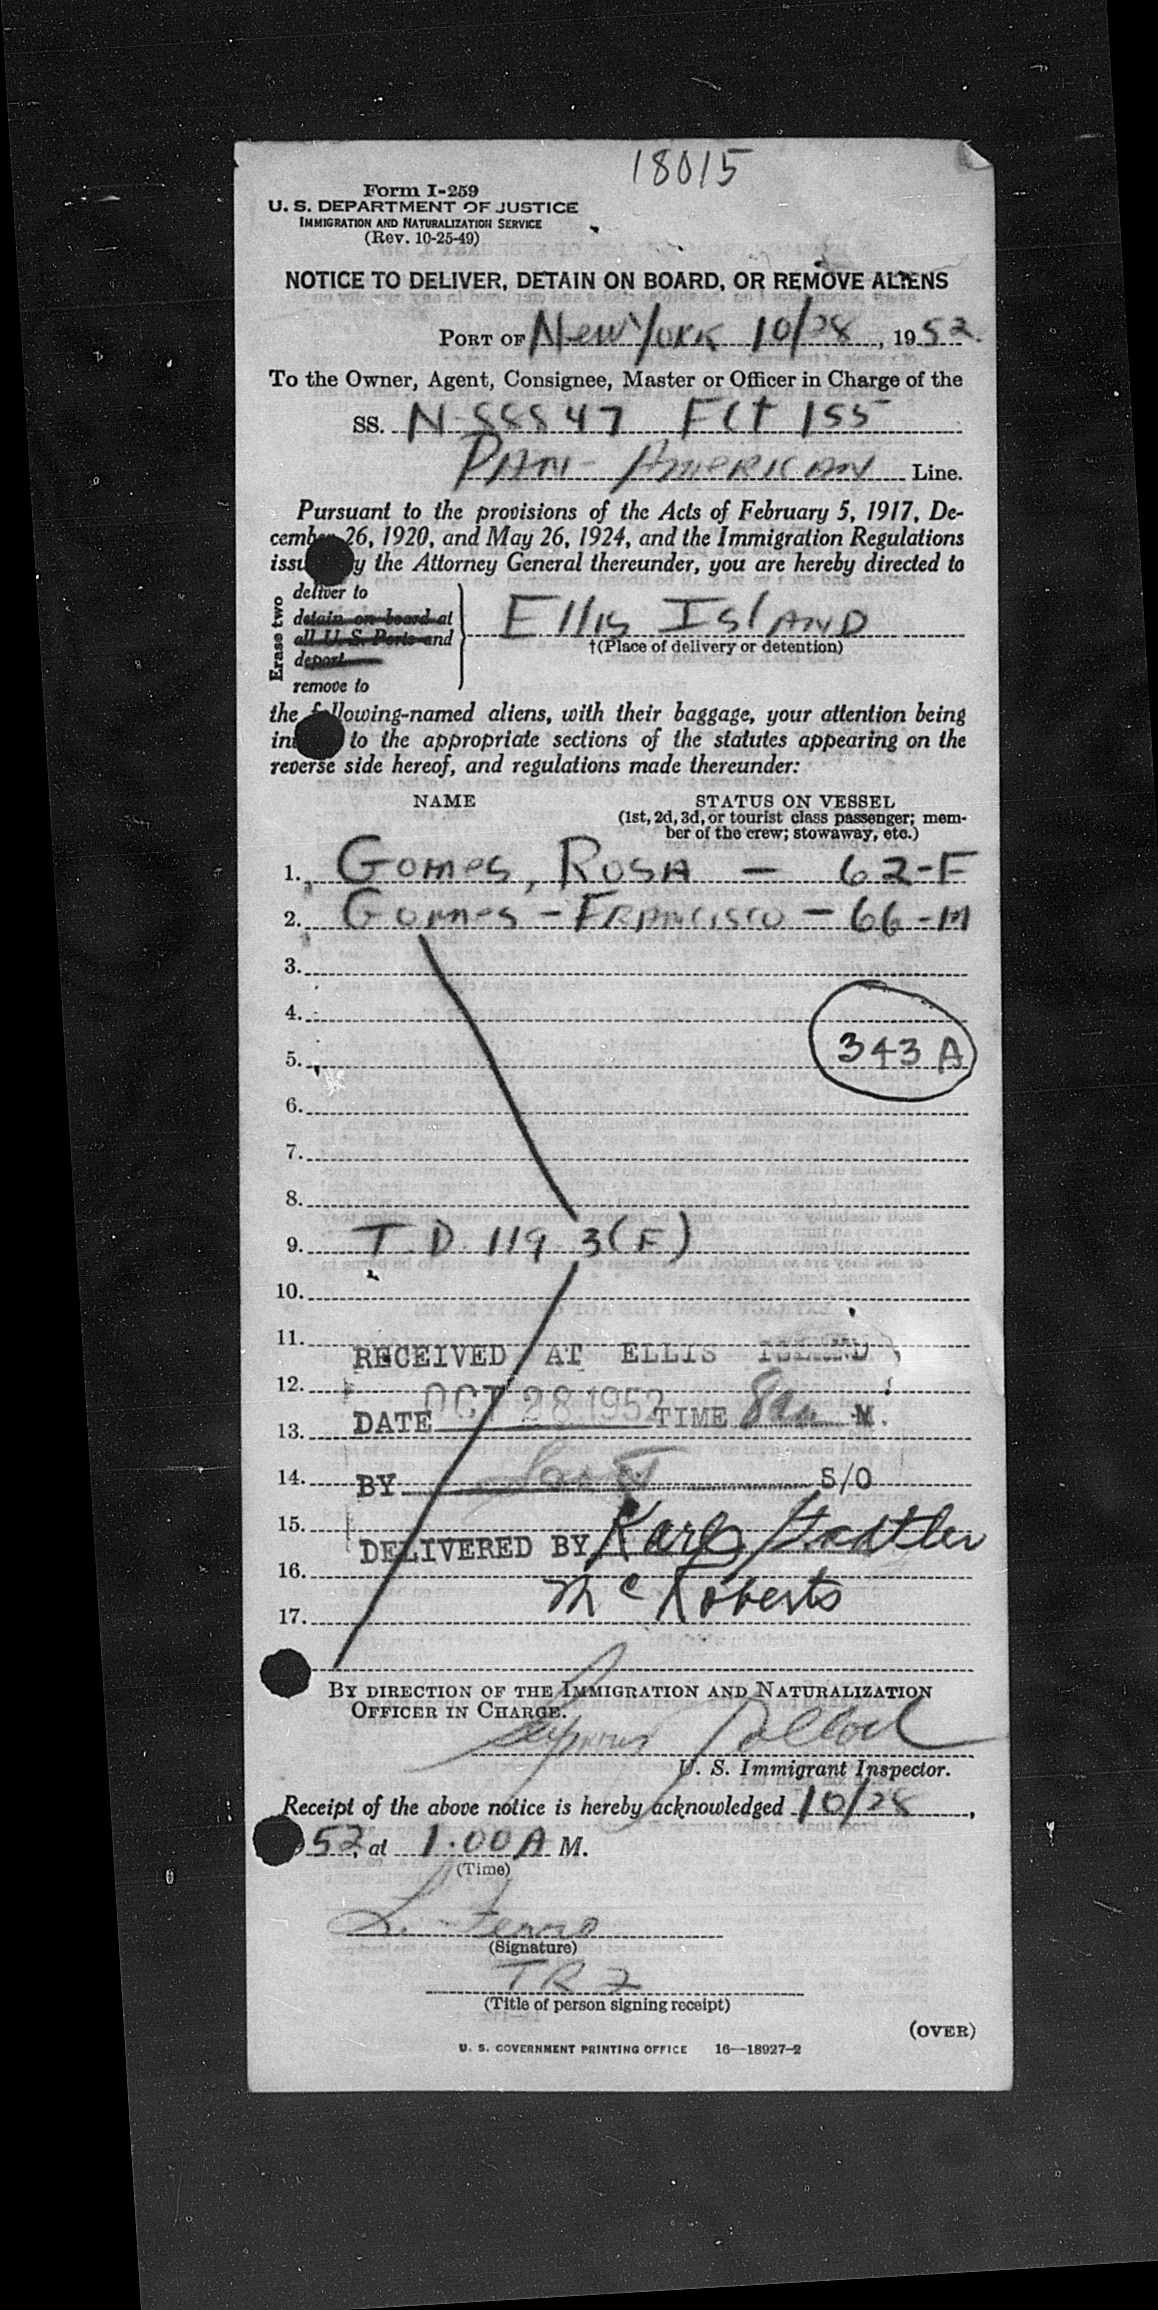 18015
Form I-259
U. S. DEPARTMENT OF JUSTICE
IMMIGRATION AND NATURALIZATION SERVICE
(Rev. 10-25-49)
NOTICE TO DELIVER, DETAIN ON BOARD, OR REMOVE ALIENS
PORT OF New York 10/28, 1952
To the Owner, Agent, Consignee, Master or Officer in Charge of the
SS. N 88847 Flt 155
PAN-AMERICAN Line.
Pursuant to the provisions of the Acts of February 5, 1917, De-
cember 26, 1920, and May 26, 1924, and the Immigration Regulations
issu y the Attorney General thereunder, you are hereby directed to
Erase two
deliver to
detain on board at
all U. S. Ports and
deport
remove to
Ellis ISLAND
†(Place of delivery or detention)
the following-named aliens, with their baggage, your attention being
in to the appropriate sections of the statutes appearing on the
reverse side hereof, and regulations made thereunder:
NAME STATUS ON VESSEL
(1st, 2d, 3d, or tourist class passenger; mem-
ber of the crew; stowaway, etc.)
1. Gomes, ROSA - 62-F
2. Gomes - FRANCISCO - 66-M
3.
4.
343 A
5.
6.
7.
8.
9. T.D. 119 3(F)
10.
11.
RECEIVED AT ELLIS ISLAND
12.
DATE OCT 28 1952 TIME 8am M.
13.
14.
BY S/O
15.
DELIVERED BY Karl Stadtler
16.
McRoberts
17.
BY DIRECTION OF THE IMMIGRATION AND NATURALIZATION
OFFICER IN CHARGE.
Seymour Pollock
U. S. Immigrant Inspector.
Receipt of the above notice is hereby acknowledged 10/28,
52, at 1.00 A M.
(Time)
L. Ferro
(Signature)
TR 2
(Title of person signing receipt)
(OVER)
U. S. GOVERNMENT PRINTING OFFICE 16—18927-2